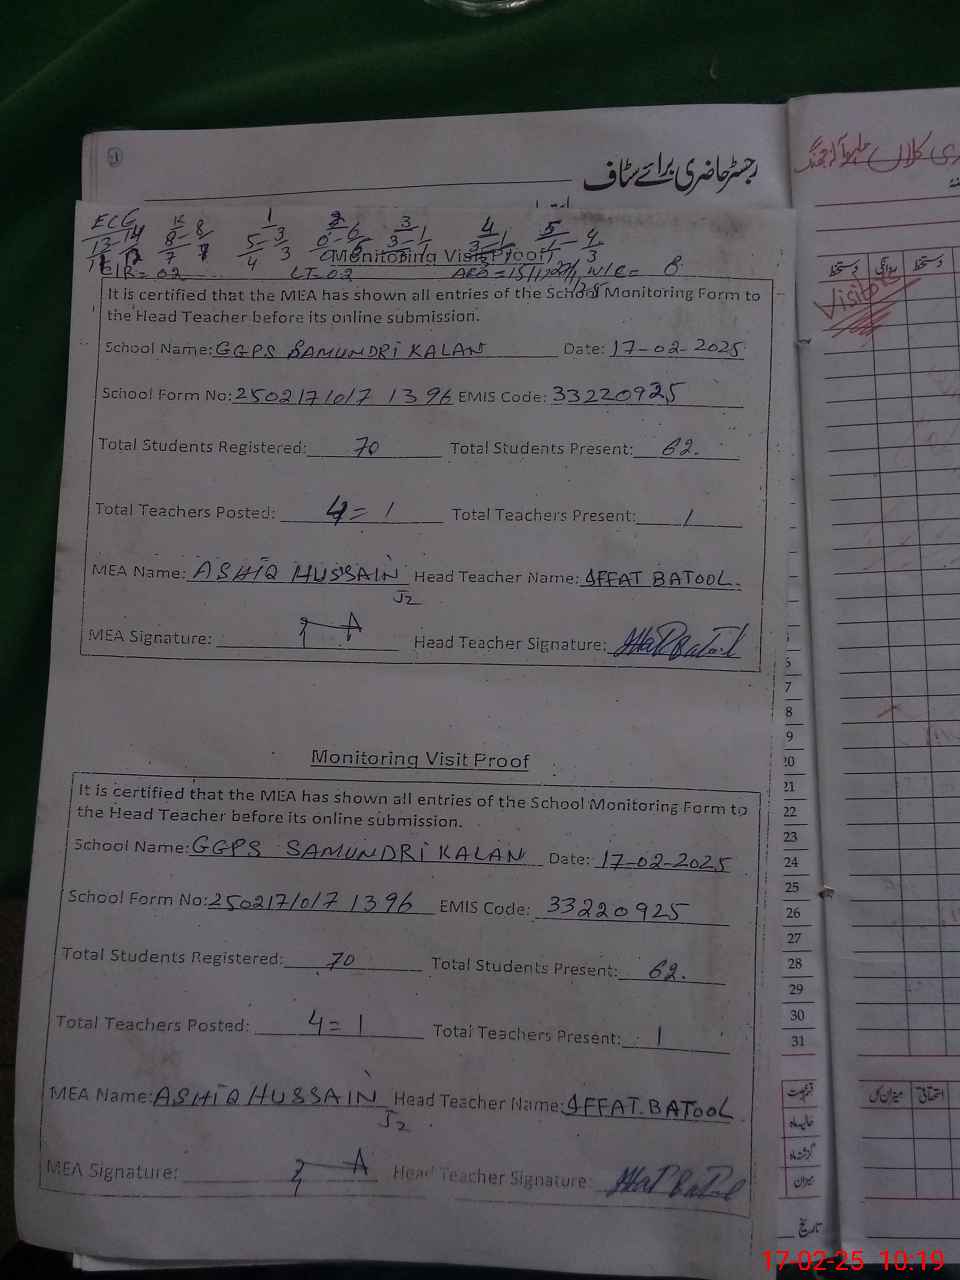 رجسٹر حاضری برائے سٹاف
ECG K 1 2 3 4 5
13-14 8-8 5-3 6-6 3-1 3-1 1-4
7 4 3 3
CIR= 02 LT-02 WIC= 8
Monitoring Visit Proof
It is certified that the MEA has shown all entries of the School Monitoring Form to
the Head Teacher before its online submission.
School Name: GGPS SAMUNDRI KALAN Date: 17-02-2025
School Form No: 25021710171396 EMIS Code: 33220925
Total Students Registered: 70 Total Students Present: 62.
Total Teachers Posted: 4=1 Total Teachers Present: 1
MEA Name: ASHIQ HUSSAIN Head Teacher Name: IFFAT BATOOL.
J2
MEA Signature: Head Teacher Signature: Iffat Batool
Monitoring Visit Proof
It is certified that the MEA has shown all entries of the School Monitoring Form to
the Head Teacher before its online submission.
School Name: GGPS SAMUNDRI KALAN Date: 17-02-2025
School Form No: 25021710171396 EMIS Code: 33220925
Total Students Registered: 70 Total Students Present: 62.
Total Teachers Posted: 4=1 Total Teachers Present: 1
MEA Name: ASHIQ HUSSAIN Head Teacher Name: IFFAT.BATOOL
J2
MEA Signature: Head Teacher Signature: Iffat Batool
دستخط روانگی دستخط
Visitore
7
8
9
20
21
22
23
24
25
26
27
28
29
30
31
میزان کل اتفاقیہ
حالیہ ماہ
گزشتہ ماہ
میزان
تاریخ
17-02-25 10:19